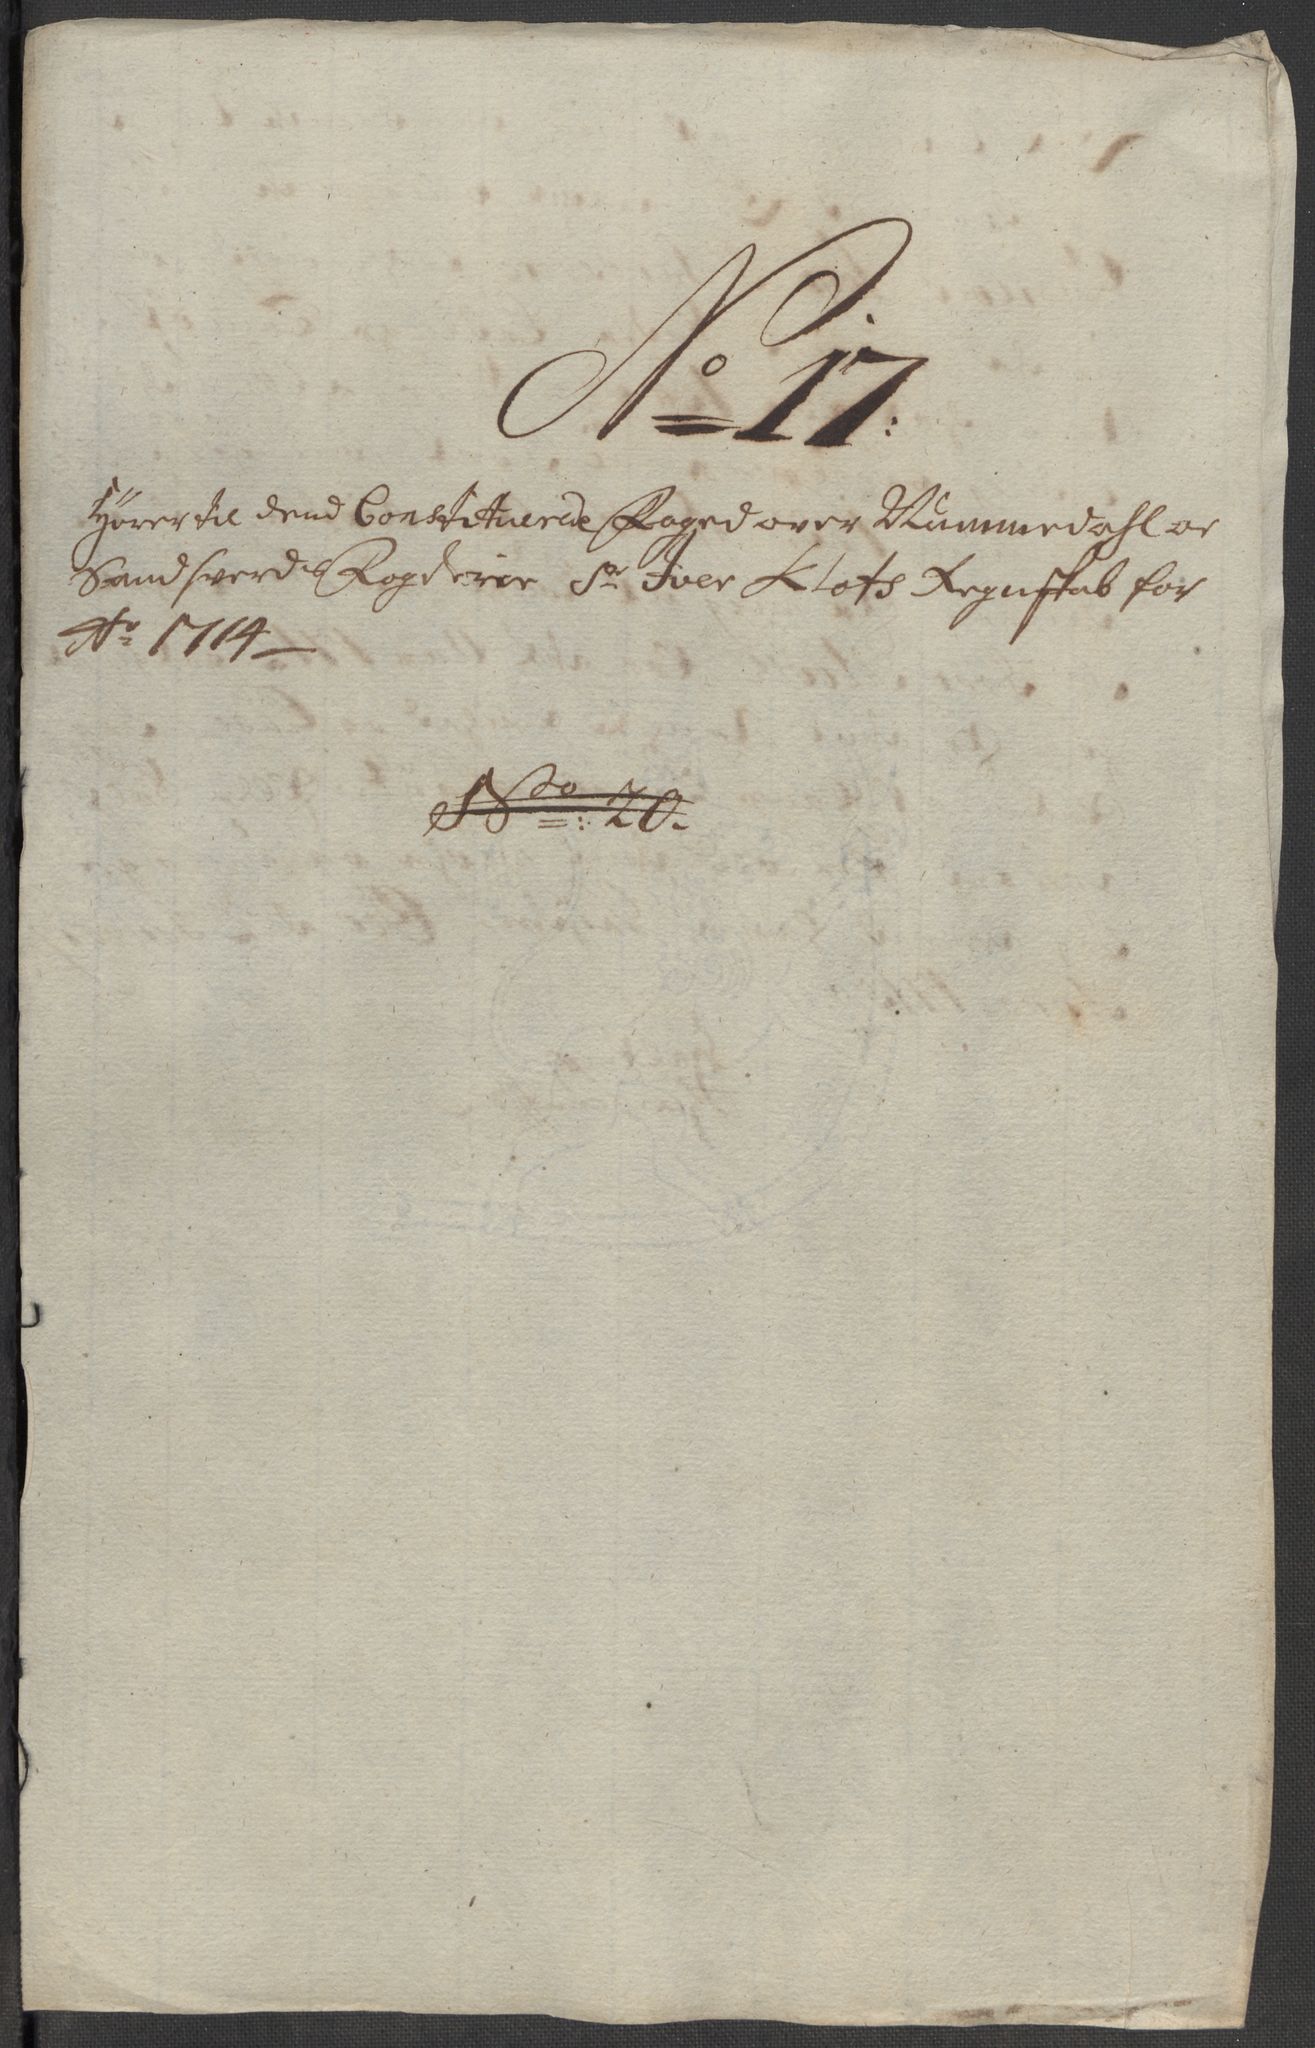 No 17:
Hører til dend Constituerede Foged over Nummedahl oc
Sandsverds Fogderier Sr Iver Klofs Regnskab for
Ao 1714
No: 20.